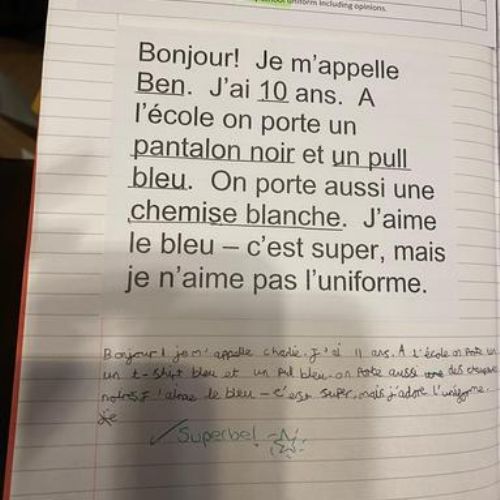 uniform including opinions.
Bonjour! Je m'appelle
Ben. J'ai 10 ans. A
l'école on porte un
pantalon noir et un pull
bleu. On porte aussi une
chemise blanche. J'aime
le bleu – c'est super, mais
je n'aime pas l'uniforme.
Bonjour! je m'appelle charlie. J'ai 11 ans. A l'école on Porte un
un t-shirt bleu et un Pul bleu. on Porte aussi des
noires J'aime le bleu - c'est super, mais j'adore l'uniforme.
je
Superbe!